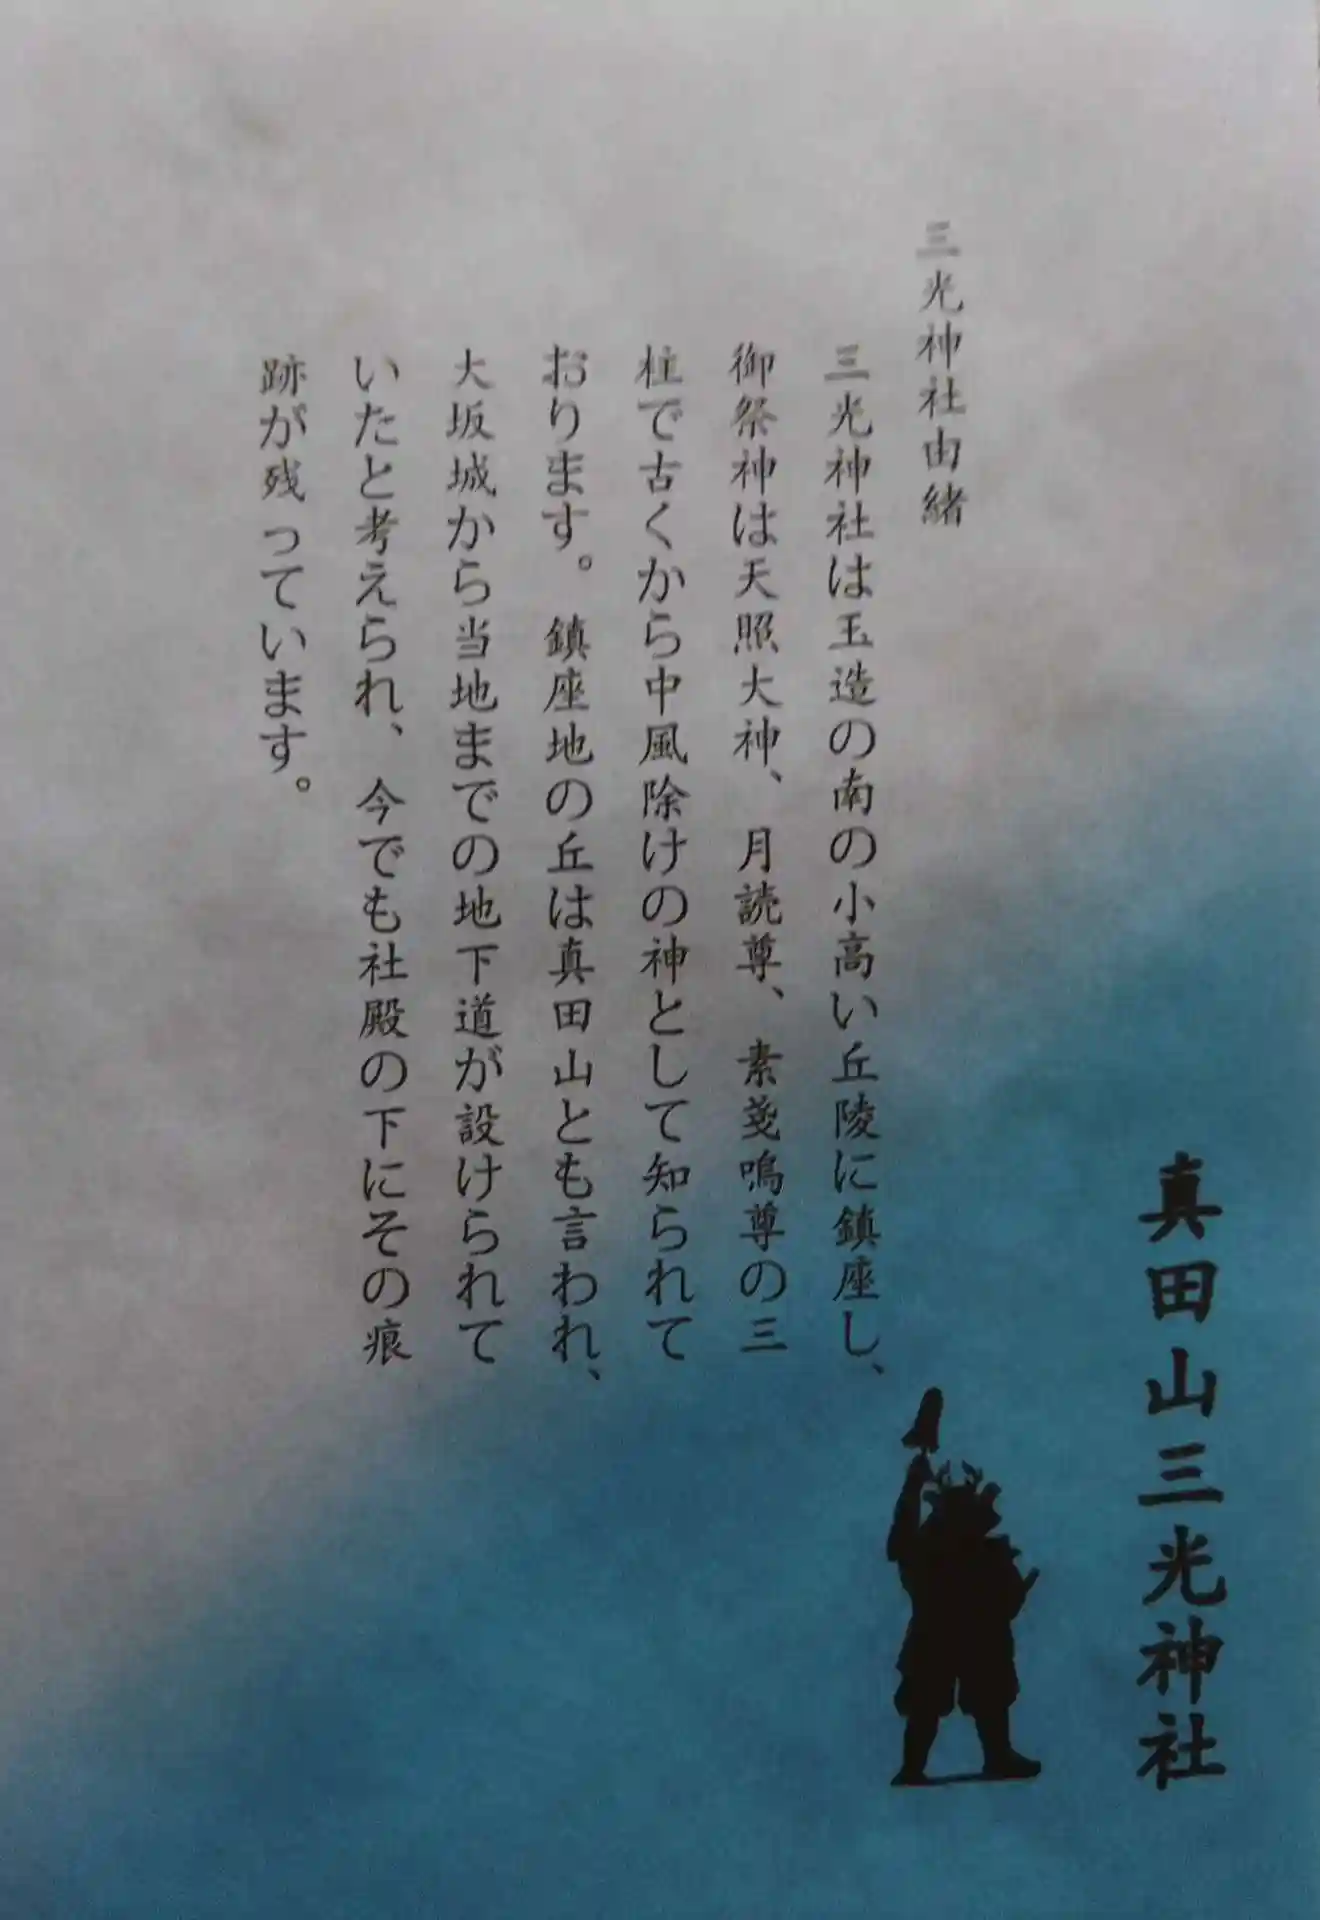 真田山三光神社
三光神社由緒
三光神社は玉造の南の小高い丘陵に鎮座し、
御祭神は天照大神、月読尊、素戔嗚尊の三
柱で古くから中風除けの神として知られて
おります。鎮座地の丘は真田山とも言われ、
大坂城から当地までの地下道が設けられて
いたと考えられ、今でも社殿の下にその痕
跡が残っています。